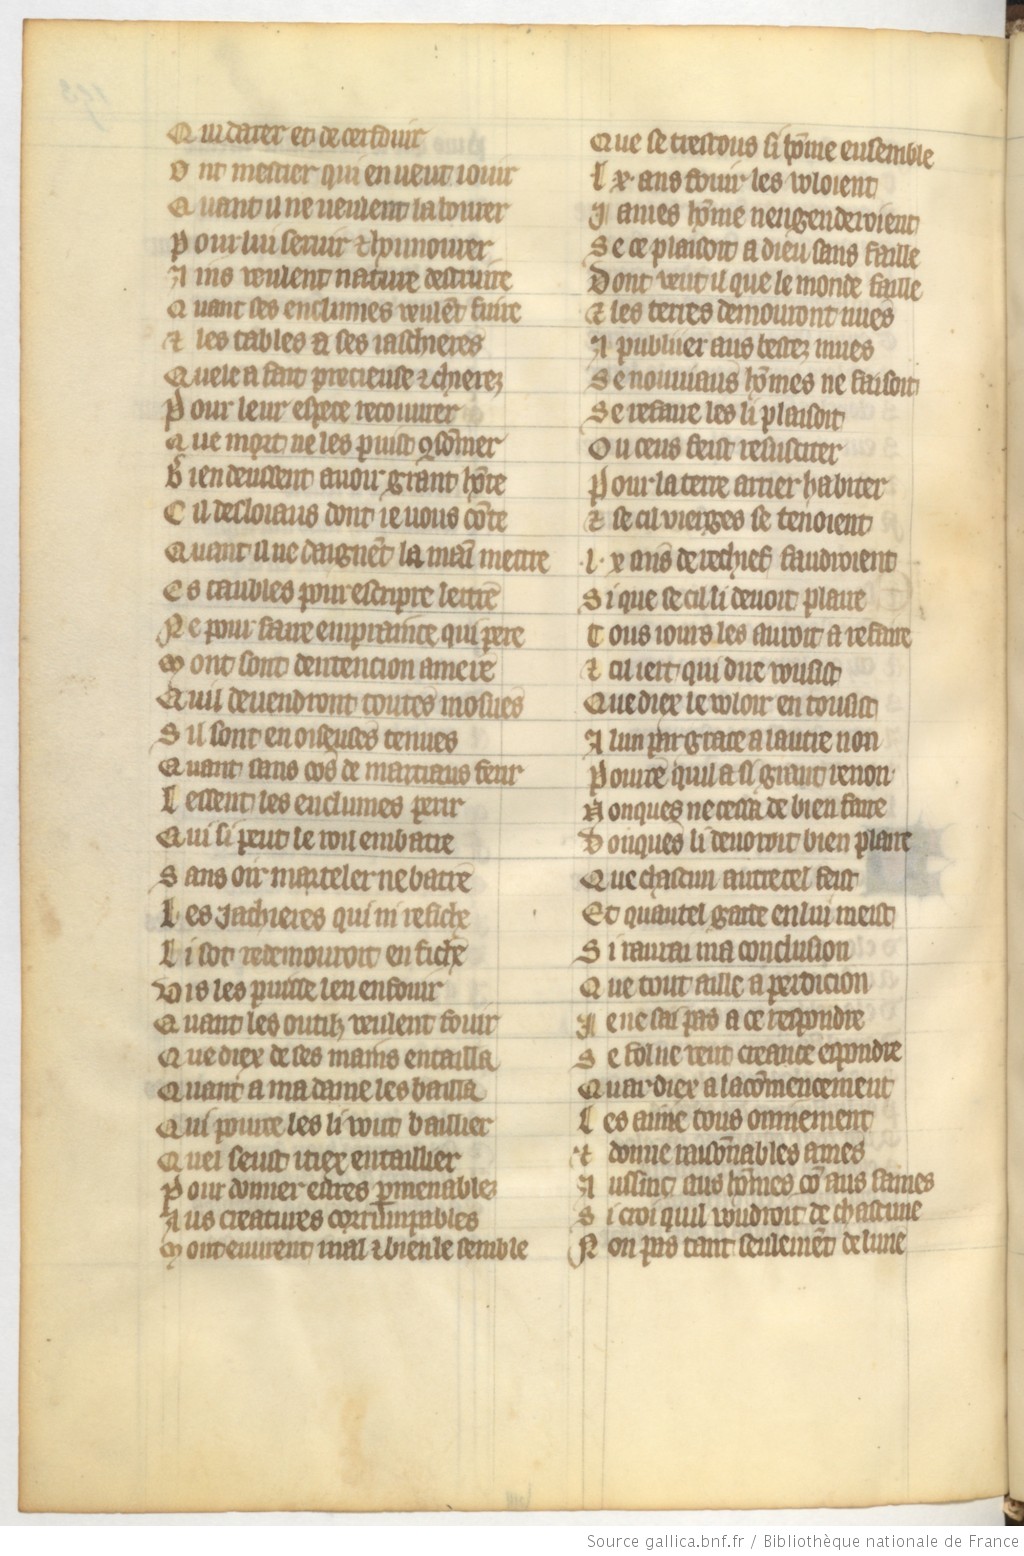 Q ui darer et de cerfouir
O nt mestier qui en veut iouir
Q uant il ne veulent labourer
P our lui seruir & honnourer
A ins veulent nature destruire
Q uant ses enclumes veulēt fuire
& les tables & ses iaschieres
Q uele a fait precieuse & chierez
P our leur espece recouurer
Q ue mort ne les puist ꝯsōmer
B ien deussent auoir grant hōte
C il desloiaus dont ie vous cōte
Q uant il ne daignēt la main mettre
E s taubles pour escripre lettre
N e pour faire emprainte qui pere
M ont sont dentencion amere
Q uil deuendront toutes mosues
S il sont en oiseuses tenues
Q uant sans cos de martiaus ferir
L essent les enclumes perir
Q ui si peut le roil embatre
S ans oir marteler ne batre
L es Jachieres qui ni refiche
L i soc redemouront en fiche
Vis les puisse len enfouir
Q uant les outilz veulent fouir
Q ue diex de ses mains entailla
Q uant a ma dame les bailla
Q ui pource les li vout baillier
Q uel seust itiex entaillier
P our donner estres ꝑmenablez
A us creatures corrumpables
M ont euurent mal & bien le semble
Que se trestous si hōme ensemble
l x ans fouir les voloient
J ames hōme nengenderoient
S e ce plaisoit a dieu sans faille
Dont veut il que le monde faille
& les terres demouront nues
A publuer aus bestez mues
S e nouuiaus hōmes ne faisoit
S e refaire les li plaisoit
O u ceus feist resusciter
P our la terre arrier habiter
& se cil vierges se tenoient
.l. x ans de rechief faudroient
S i que se cil li deuoit plaire
T ous iours les auroit a refaire
& cil iert qui dire vousist
Que diex le voloir en tousist
A lun par grace a lautre non
P ource quil a si grant renon
N onques ne cessa de bien faire
D onques li deuroit bien plaire
Q ue chascun autretel feist
Et quautel grace en lui meist
S i raurai ma conclusion
Q ue tout aille a perdicion
J e ne sai pas a ce respondre
S e foi ne veut creance espondre
Q uar diex a lacōmencement
L es aime tous onniement
& donne raisōnables ames
A ussinc aus hōmes cō aus fames
S i croi quil voudroit de chascune
N on pas tant seulemēt de lune
Source gallica.bnf.fr / Bibliothèque nationale de France